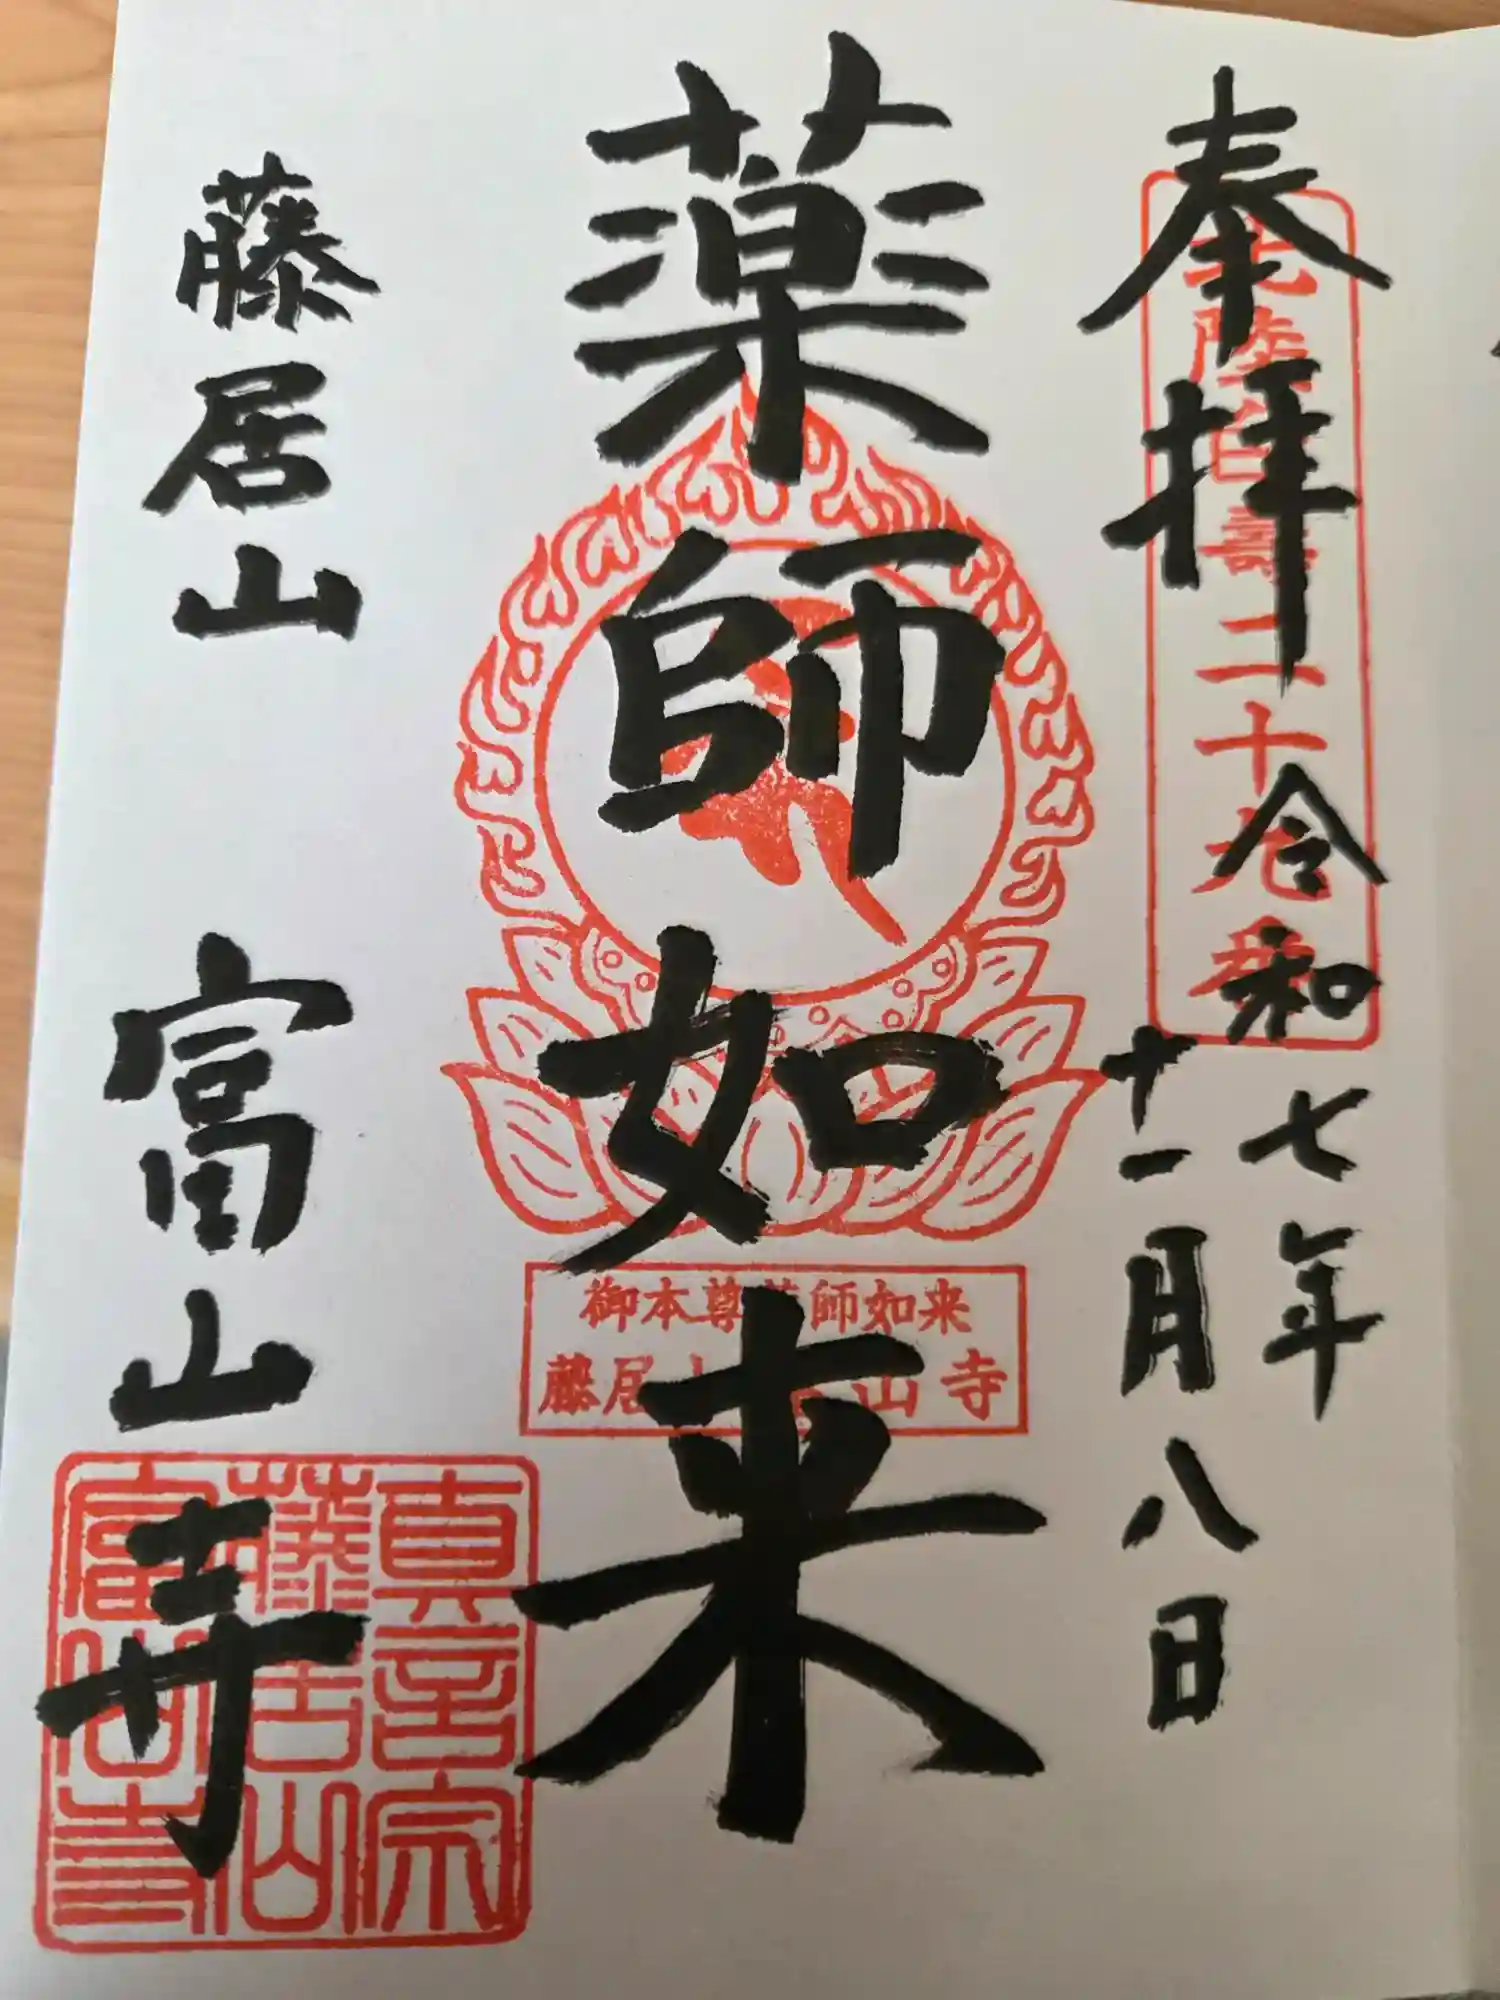 奉拝
北陸白寿二十九番
令和七年
十一月八日
薬師如来
御本尊薬師如来
藤居山富山寺
藤居山
富山寺
真言宗
藤居山
富山寺